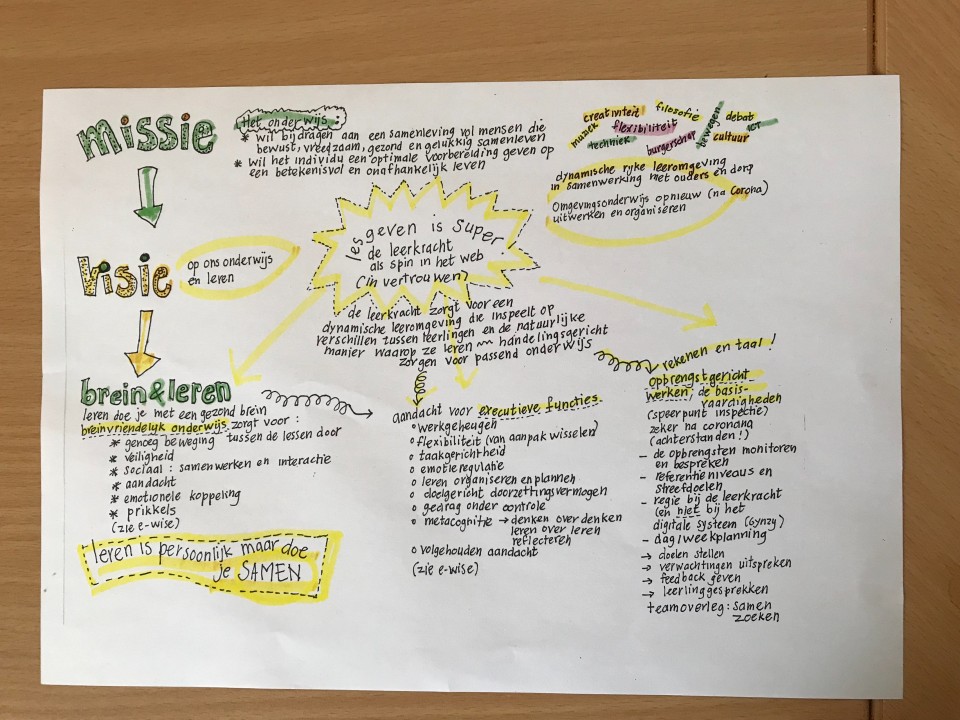 missie
Het onderwijs:
* wil bijdragen aan een samenleving vol mensen die
bewust, vreedzaam, gezond en gelukkig samenleven
* wil het individu een optimale voorbereiding geven op
een betekenisvol en onafhankelijk leven
creativiteit
filosofie
muziek
flexibiliteit
bewegen
debat
ICT
techniek
burgerschap
cultuur
dynamische rijke leeromgeving
in samenwerking met ouders en dorp
Omgevingsonderwijs opnieuw (na Corona)
uitwerken en organiseren
visie
op ons onderwijs
en leren
les geven is super
de leerkracht
als spin in het web
(in vertrouwen)
de leerkracht zorgt voor een
dynamische leeromgeving die inspeelt op
verschillen tussen leerlingen en de natuurlijke
manier waarop ze leren ~~ handelingsgericht
zorgen voor passend onderwijs
brein&leren
leren doe je met een gezond brein
breinvriendelijk onderwijs zorgt voor:
* genoeg beweging tussen de lessen door
* veiligheid
* sociaal: samenwerken en interactie
* aandacht
* emotionele koppeling
* prikkels
(zie e-wise)
leren is persoonlijk maar doe
je SAMEN
aandacht voor executieve functies
o werkgeheugen
o flexibiliteit (van aanpak wisselen)
o taakgerichtheid
o emotieregulatie
o leren organiseren en plannen
o doelgericht doorzettingsvermogen
o gedrag onder controle
o metacognitie → denken over denken
leren over leren
reflecteren
o volgehouden aandacht
(zie e-wise)
rekenen en taal!
opbrengstgericht
werken, de basis-
vaardigheden
(speerpunt inspectie)
zeker na corona
(achterstanden!)
- de opbrengsten monitoren
en bespreken
- referentieniveaus en
streefdoelen
- regie bij de leerkracht
(en niet bij het
digitale systeem (Gynzy)
- dag/weekplanning
→ doelen stellen
→ verwachtingen uitspreken
→ feedback geven
→ leerlinggesprekken
teamoverleg: samen
zoeken